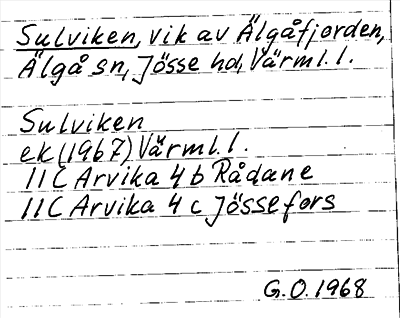 Sulviken, vik av Älgåfjorden,
Älgå sn, Jösse hd, Värml. l.
Sulviken
ek (1967) Värml. l.
11C Arvika 4 b Rådane
11C Arvika 4 c Jössefors
G.O. 1968